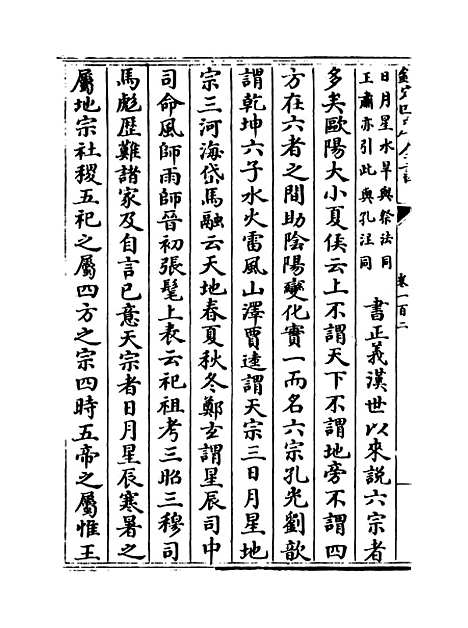 欽定四庫全書
卷一百二
日月星水旱與祭法同
王肅亦引此與孔注同
書正義漢世以來説六宗者
多矣歐陽大小夏侯云上不謂天下不謂地旁不謂四
方在六者之間助陰陽變化實一而名六宗孔光劉歆
謂乾坤六子水火雷風山澤賈逵謂天宗三日月星地
宗三河海岱馬融云天地春夏秋冬鄭玄謂星辰司中
司命風師雨師晉初張髦上表云祀祖考三昭三穆司
馬彪歴難諸家及自言已意天宗者日月星辰寒暑之
屬地宗社稷五祀之屬四方之宗四時五帝之屬惟王